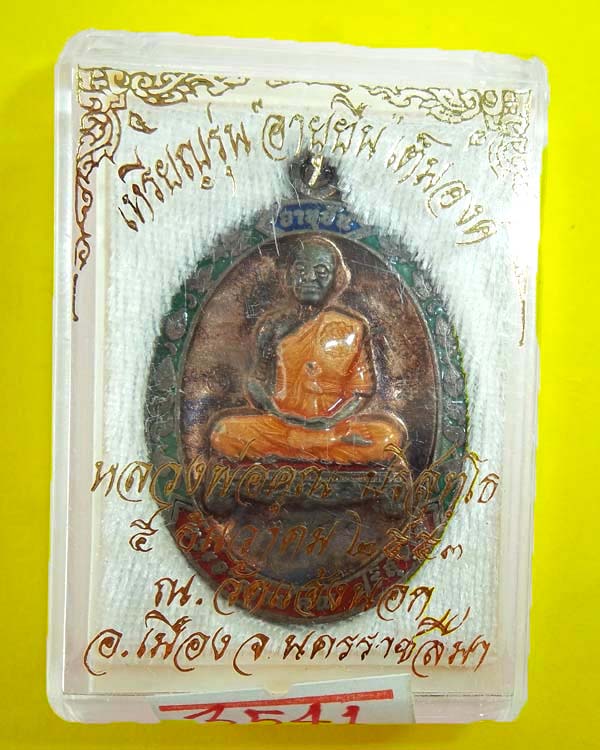 เหรียญรุ่น "อายุยืน" เต็มองค์
อายุยืน
หลวงพ่อคูณ ปริสุทฺโธ
๕ ธันวาคม ๒๕๕๓
ณ. วัดแจ้งนอก
อ.เมือง จ.นครราชสีมา
3541